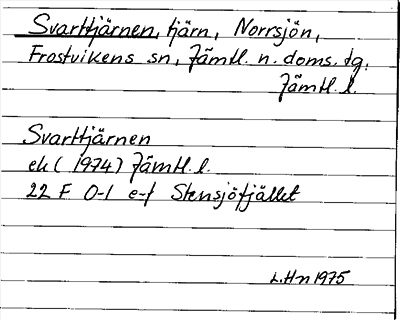 Svarttjärnen, tjärn, Norrsjön,
Frostvikens sn, Jämtl. n. doms. tg.
Jämtl. l.
Svarttjärnen
ek (1974) Jämtl. l.
22 F 0-1 e-f Stensjöfjället
L.Hn 1975